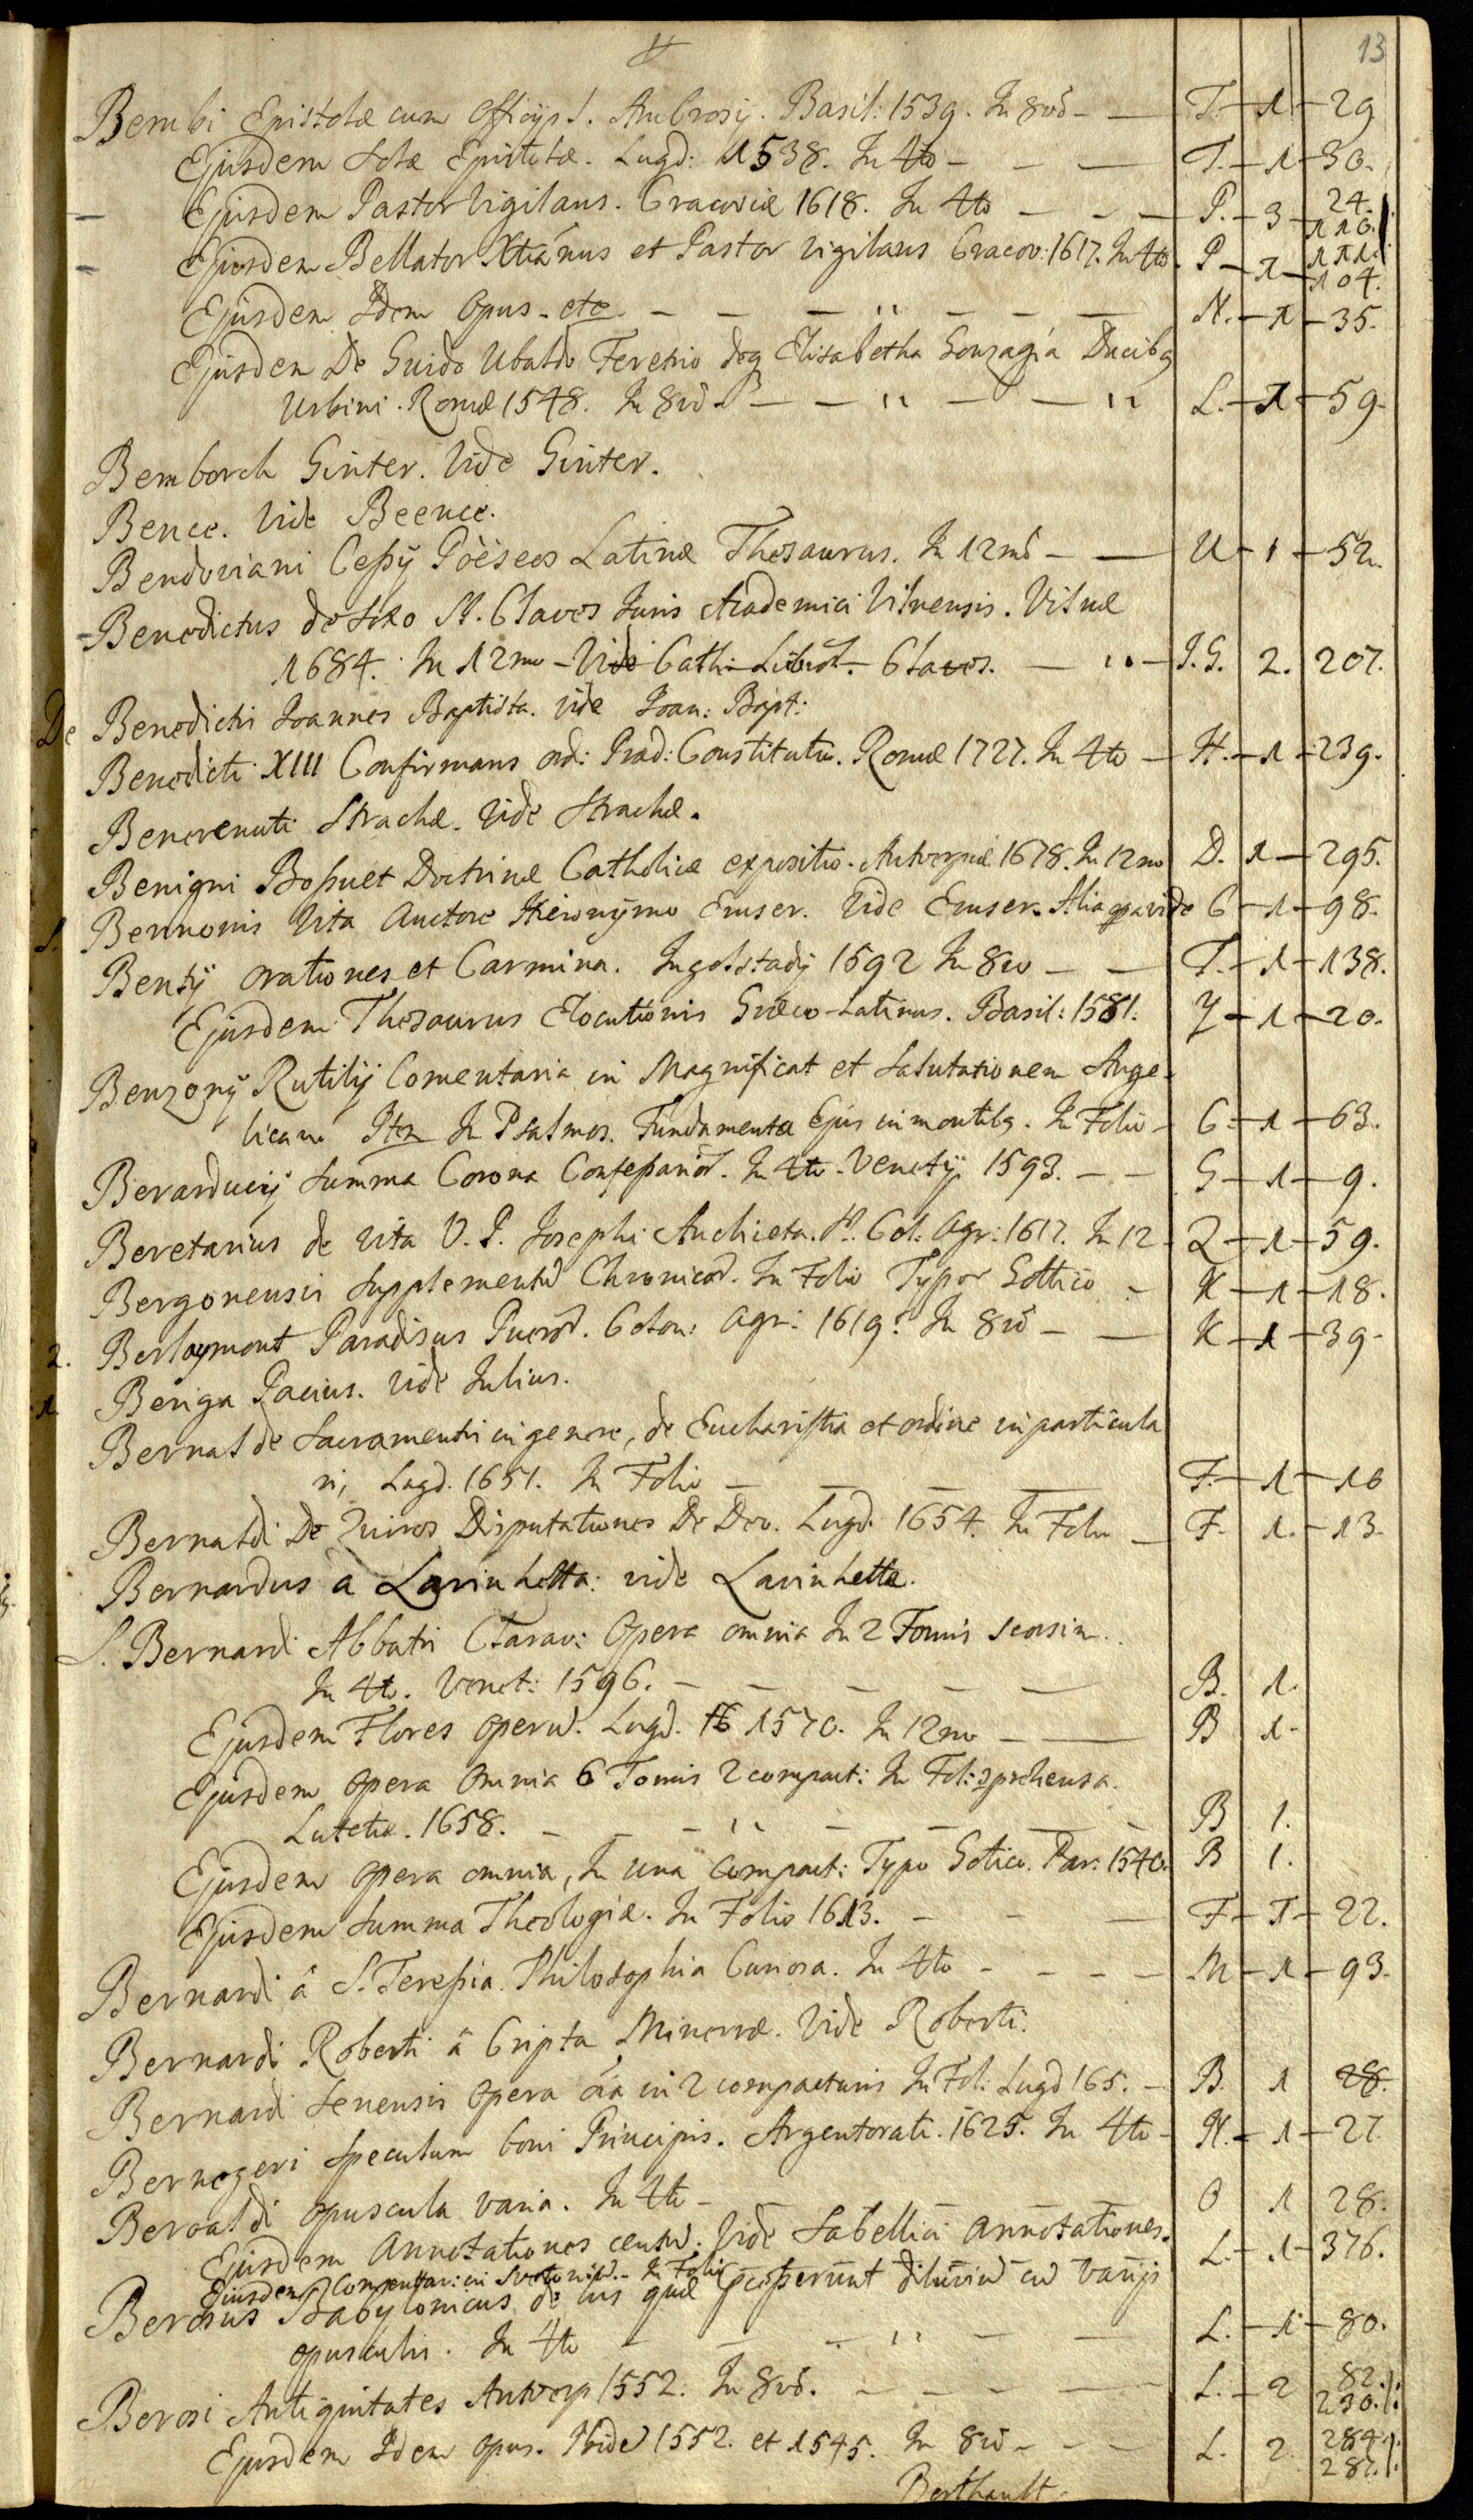 13
Bembi Epistolæ cum Officijs S. Ambrosij. Basil: 1539. In 8vo — T. — 1 — 29
Ejusdem Solæ Epistolæ. Lugd: 1538. In 4to — T. — 1 — 30.
Ejusdem Pastor Vigilans. Cracoviæ 1618. In 4to — P. — 3 — 24. 110.
Ejusdem Bellator Xtianus et Pastor vigilans Cracov: 1617. In 4to. P — 1 — 111. 104.
Ejusdem Idem Opus. etc. — N. — 1 — 35.
Ejusdem De Guido Ubaldo Feretrio deq Elisabetha Gonzagia Ducibq
Urbini. Romæ 1548. In 8vo. — L. — 1 — 59.
Bemborch Ginter. Vide Ginter.
Bence. Vide Beence.
Benduviani Cessij Pöèseos Latinæ Thesaurus. In 12mo — U — 1 — 52.
Benedictus de Soxo St. Claves Juris Academici Vilnensis. Vilnæ
1684. In 12mo — Vide Cath: Libror. Claves. — J.G. 2. 207.
De Benedictis Joannes Baptista. vide Joan: Bapt:
Benedicti XIII Confirmans ord: Præd: Constitutio. Romæ 1727. In 4to — H. — 1 — 239.
Benevenuti Strachæ. Vide Strachæ.
Benigni Bossuet Doctrinæ Catholicæ expositio. Antverpiæ 1678. In 12mo D. 1 — 295.
S. Bennonis Vita Auctore Hieronymo Emser. Vide Emser. Alia vide C — 1 — 98.
Bensij orationes et Carmina. Ingolstadij 1592 In 8vo — T. — 1 — 138.
Ejusdem Thesaurus Elocutionis Græco-Latinus. Basil: 1581. Y — 1 — 20.
Benzonij Rutilij Comentaria in Magnificat et Salutationem Ange-
licam Item In Psalmos. Fundamenta Ejus in montibq. In Folio — C — 1 — 63.
Berarducij Summa Corona Confessarior. In 4to. Venetij 1593. — G — 1 — 9.
Beretarius de vita V. P. Josephi Anchieta. Col: Agr: 1617. In 12 — Q — 1 — 59.
Bergonensis Supplementum Chronicor. In Folio Typor Gottico — K — 1 — 18.
2. Berlaymont Paradisus Pueror. Colon: Agr: 1619. In 8vo — K — 1 — 39.
1. Beriga Pacius. vide Julius.
Bernal de Sacramentis in genere, de Eucharistia et ordine in particula
ri, Lugd. 1651. In Folio — F. — 1 — 10
Bernaldi De Quiros Disputationes De Deo. Lugd: 1654. In Folio — F. 1. — 13.
Bernardus a Lavinhetta: vide Lavinhetta.
S. Bernardi Abbatis Clarav: Opera omnia In 2 Tomis seorsim.
In 4to. Venet: 1596. — B. 1.
Ejusdem Flores operum. Lugd. 1570. In 12mo — B 1.
Ejusdem Opera Omnia 6 Tomis 2 compact: In Fol: sprehensa.
Lutetiæ. 1658. — B 1.
Ejusdem Opera omnia, In una Compact: Typo Gotico. Par: 1540. B 1.
Ejusdem Summa Theologiæ. In Folio 1613. — F — 1 — 22.
Bernardi â S. Teressia. Philosophia Curiosa. In 4to — M — 1 — 93.
Bernardi Roberti â Cripta Minervæ. Vide Roberti.
Bernardi Senensis Opera oia in 2 compacturis In Fol: Lugd 165. — B. 1 28.
Bernegeri Speculum boni Principis. Argentorati. 1625. In 4to — N. — 1 — 27.
Beroaldi opuscula varia. In 4to — O 1 28.
Ejusdem Annotationes centum. Vide Sabellici Annotationes. L. — 1 — 376.
Ejusdem Commentar: in Svetonium. In Folio
Berosus Babylonicus de his quæ præcesserunt diluvium cum varijs
opusculis. In 4to — L. — 1 — 80.
Berosi Antiquitates Antverp 1552. In 8vo. — L. — 2 82. 230.
Ejusdem Idem opus. Ibidem 1552. et 1545. In 8vo — L. 2. 284. 287.
Berthault